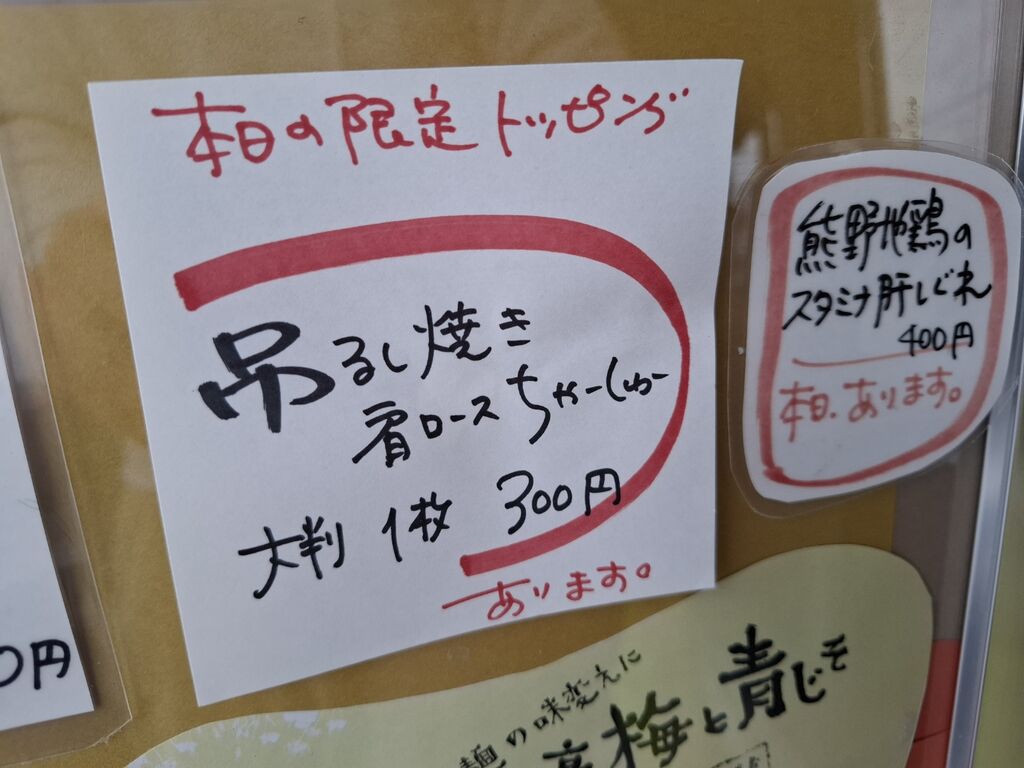 本日の限定トッピング
吊るし焼き
肩ロースちゃーしゅー
大判 1枚 300円
あります。
熊野地鶏の
スタミナ肝しぐれ
400円
本日、あります。
0円
麺の味変えに
梅と青じそ